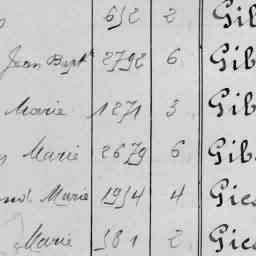 652 2 Gil
Jean Bapte 2792 6 Gib
Marie 1271 3 Gib
Marie 2679 6 Gib
Marie 1954 4 Gic
Marie 581 2 Gic